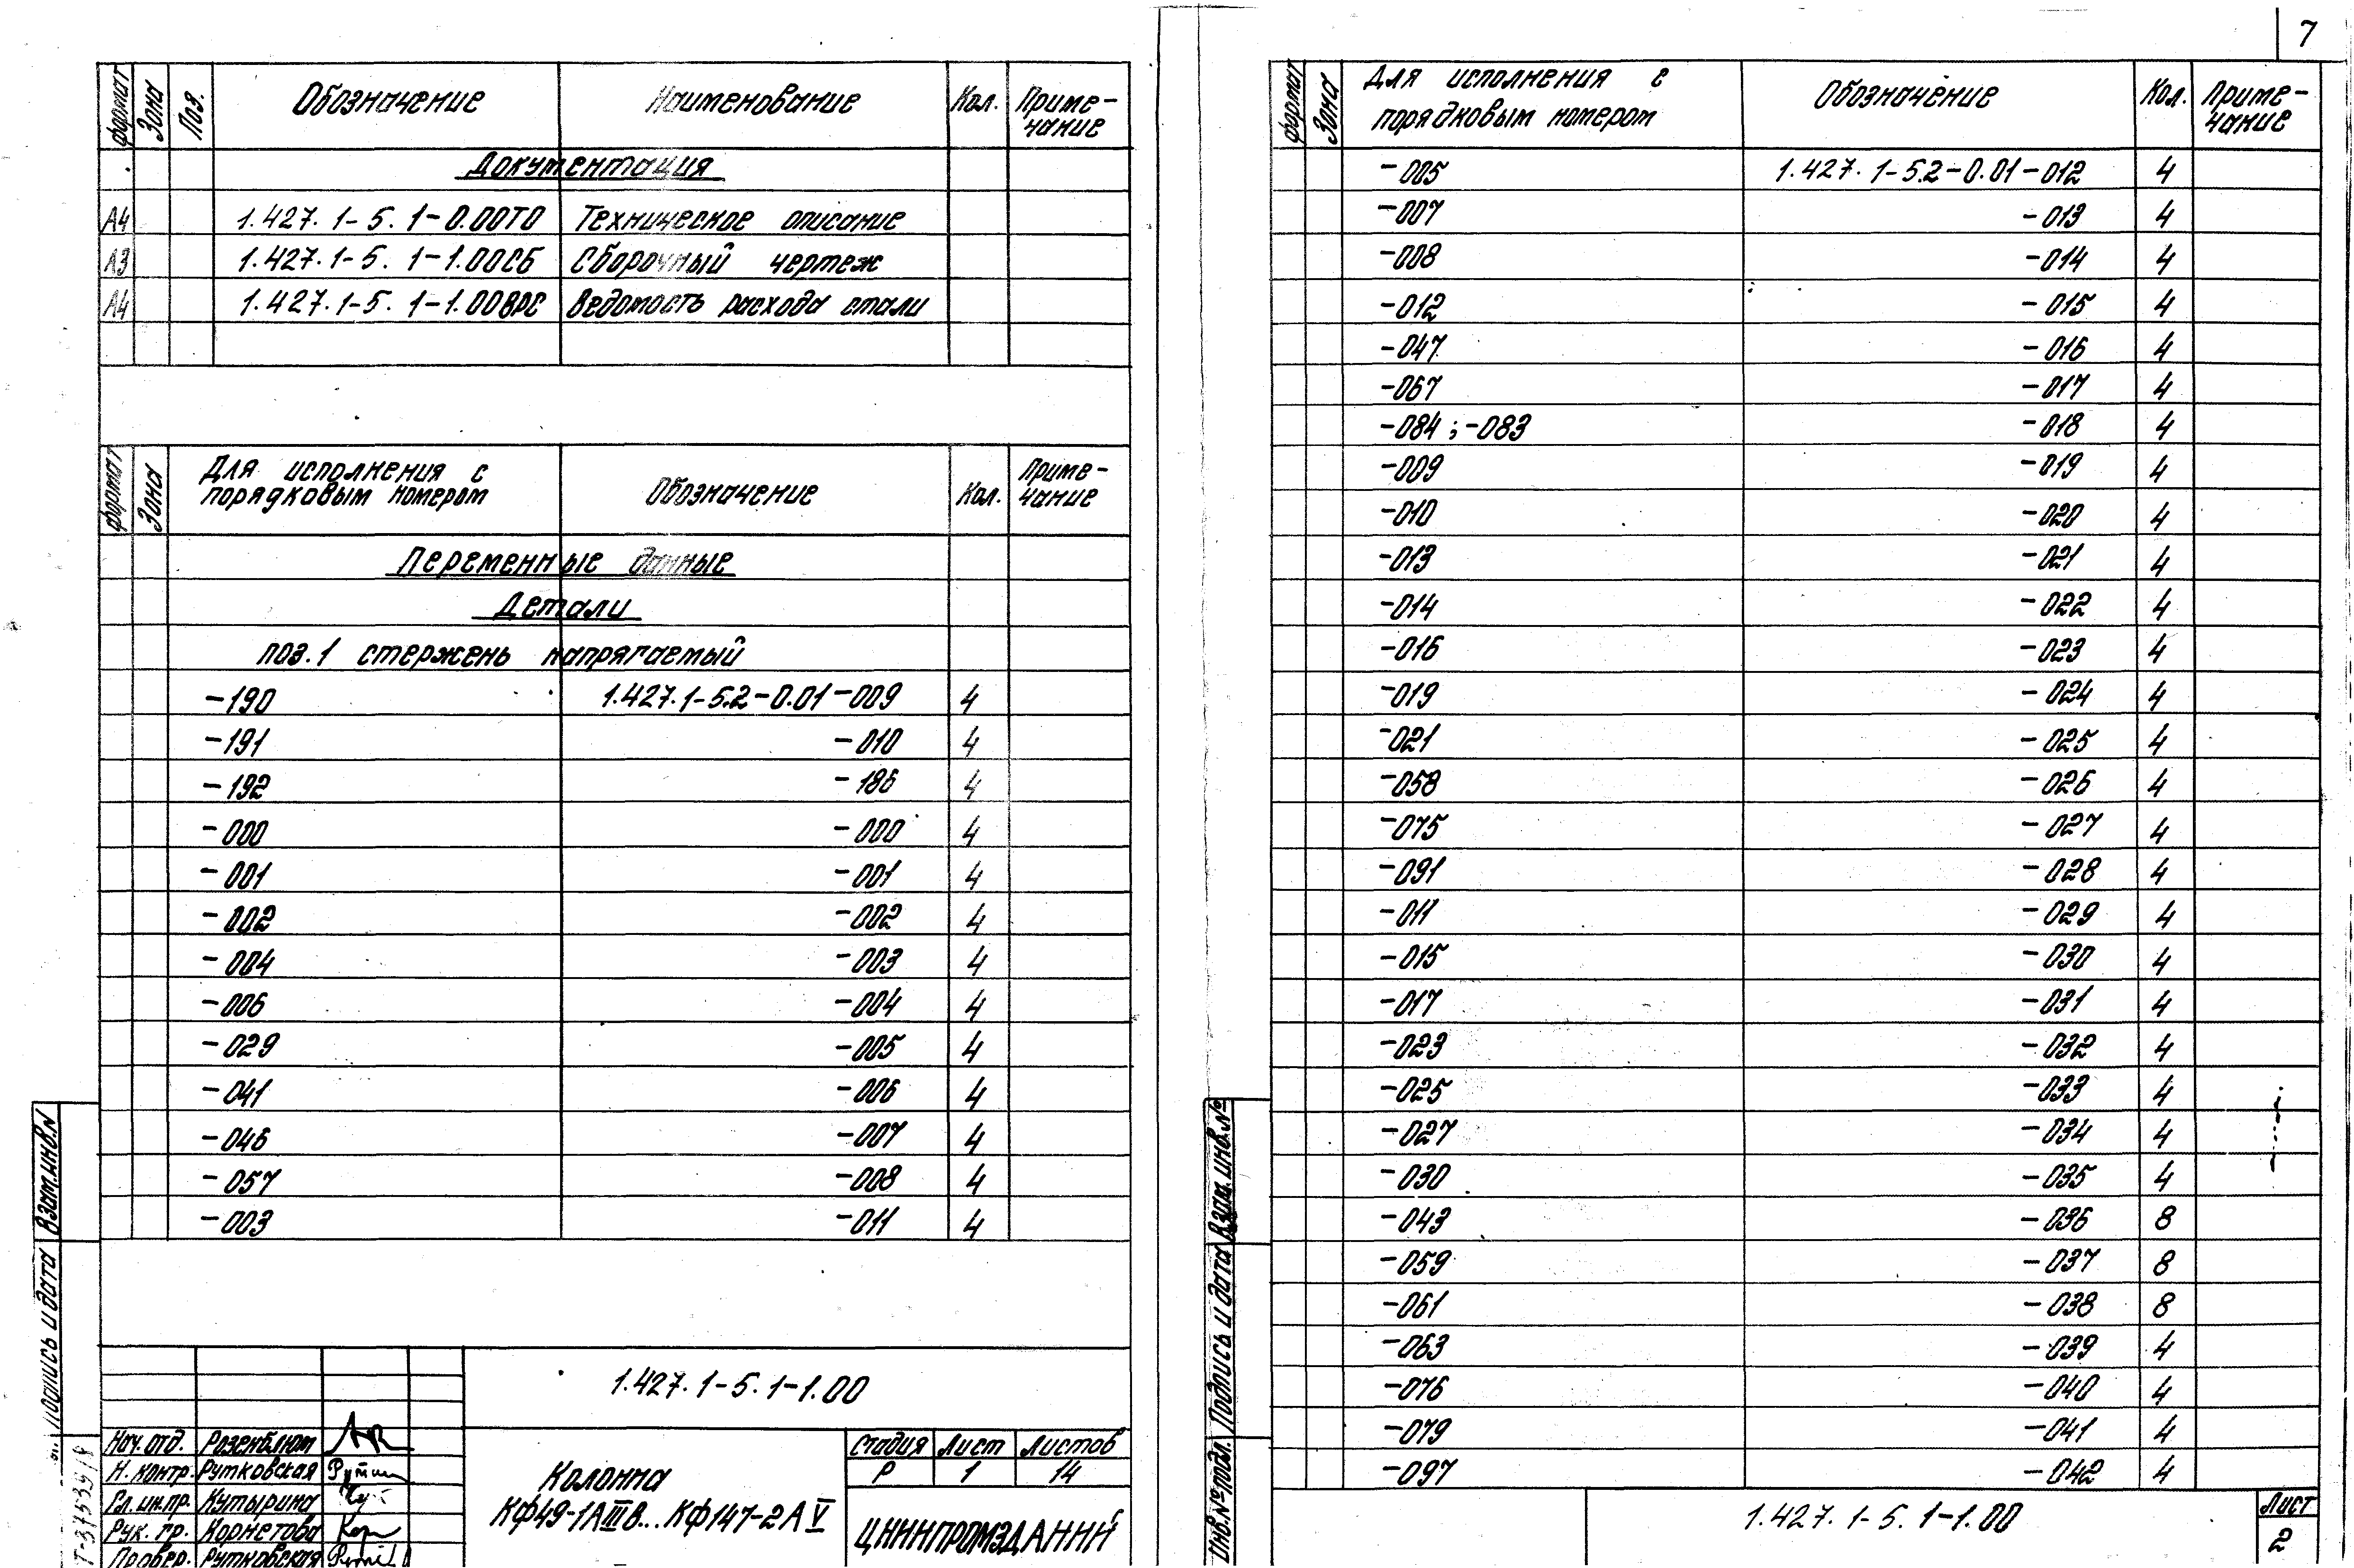 7
формат Зона Поз. Обозначение Наименование Кол. Приме-
чание
Документация
А4 1.427.1-5.1-0.00ТО Техническое описание
А3 1.427.1-5.1-1.00СБ Сборочный чертеж
А4 1.427.1-5.1-1.00ВРС Ведомость расхода стали
формат Зона Для исполнения с
порядковым номером Обозначение Кол. Приме-
чание
Переменные данные
Детали
поз.1 стержень напрягаемый
-190 1.427.1-5.2-0.01-009 4
-191 -010 4
-192 -186 4
-000 -000 4
-001 -001 4
-002 -002 4
-004 -003 4
-006 -004 4
-029 -005 4
-041 -006 4
-046 -007 4
-057 -008 4
-003 -011 4
Взам.инв.N
Подпись и дата
1.427.1-5.1-1.00
Нач.отд. Розенблюм
Н.контр. Рутковская
Гл.ин.пр. Кутырина
Рук.гр. Корнетова
Провер. Рутковская
Колонна
КФ49-1АIIIв...КФ147-2АV
Стадия Лист Листов
Р 1 14
ЦНИИПРОМЗДАНИЙ
формат Зона Для исполнения с
порядковым номером Обозначение Кол. Приме-
чание
-005 1.427.1-5.2-0.01-012 4
-007 -013 4
-008 -014 4
-012 -015 4
-047 -016 4
-067 -017 4
-084;-083 -018 4
-009 -019 4
-010 -020 4
-013 -021 4
-014 -022 4
-016 -023 4
-019 -024 4
-021 -025 4
-058 -026 4
-075 -027 4
-091 -028 4
-011 -029 4
-015 -030 4
-017 -031 4
-023 -032 4
-025 -033 4
-027 -034 4
-030 -035 4
-043 -036 8
-059 -037 8
-061 -038 8
-063 -039 4
-076 -040 4
-079 -041 4
-097 -042 4
Взам.инв.№
Подпись и дата
Инв.№подл.
1.427.1-5.1-1.00
Лист
2